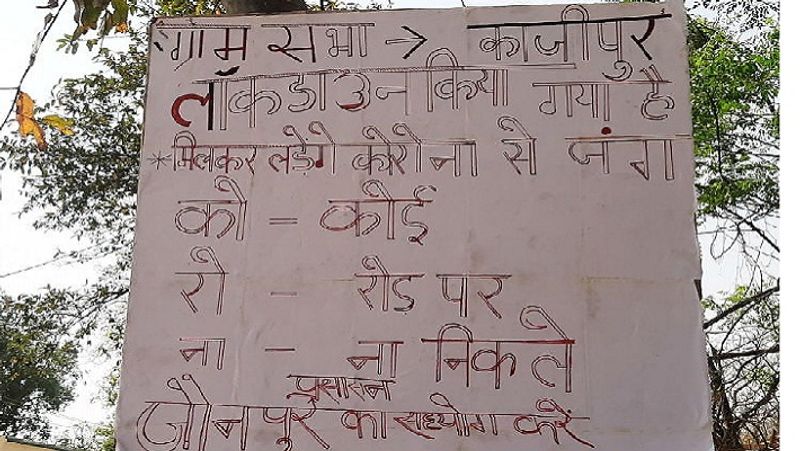 ग्राम सभा → काजीपुर
लॉकडाउन किया गया है
*मिलकर लड़ेगे कोरोना से जंग
को - कोई
रो - रोड पर
ना - ना निकले
प्रसासन
जौनपुर का सहयोग करें